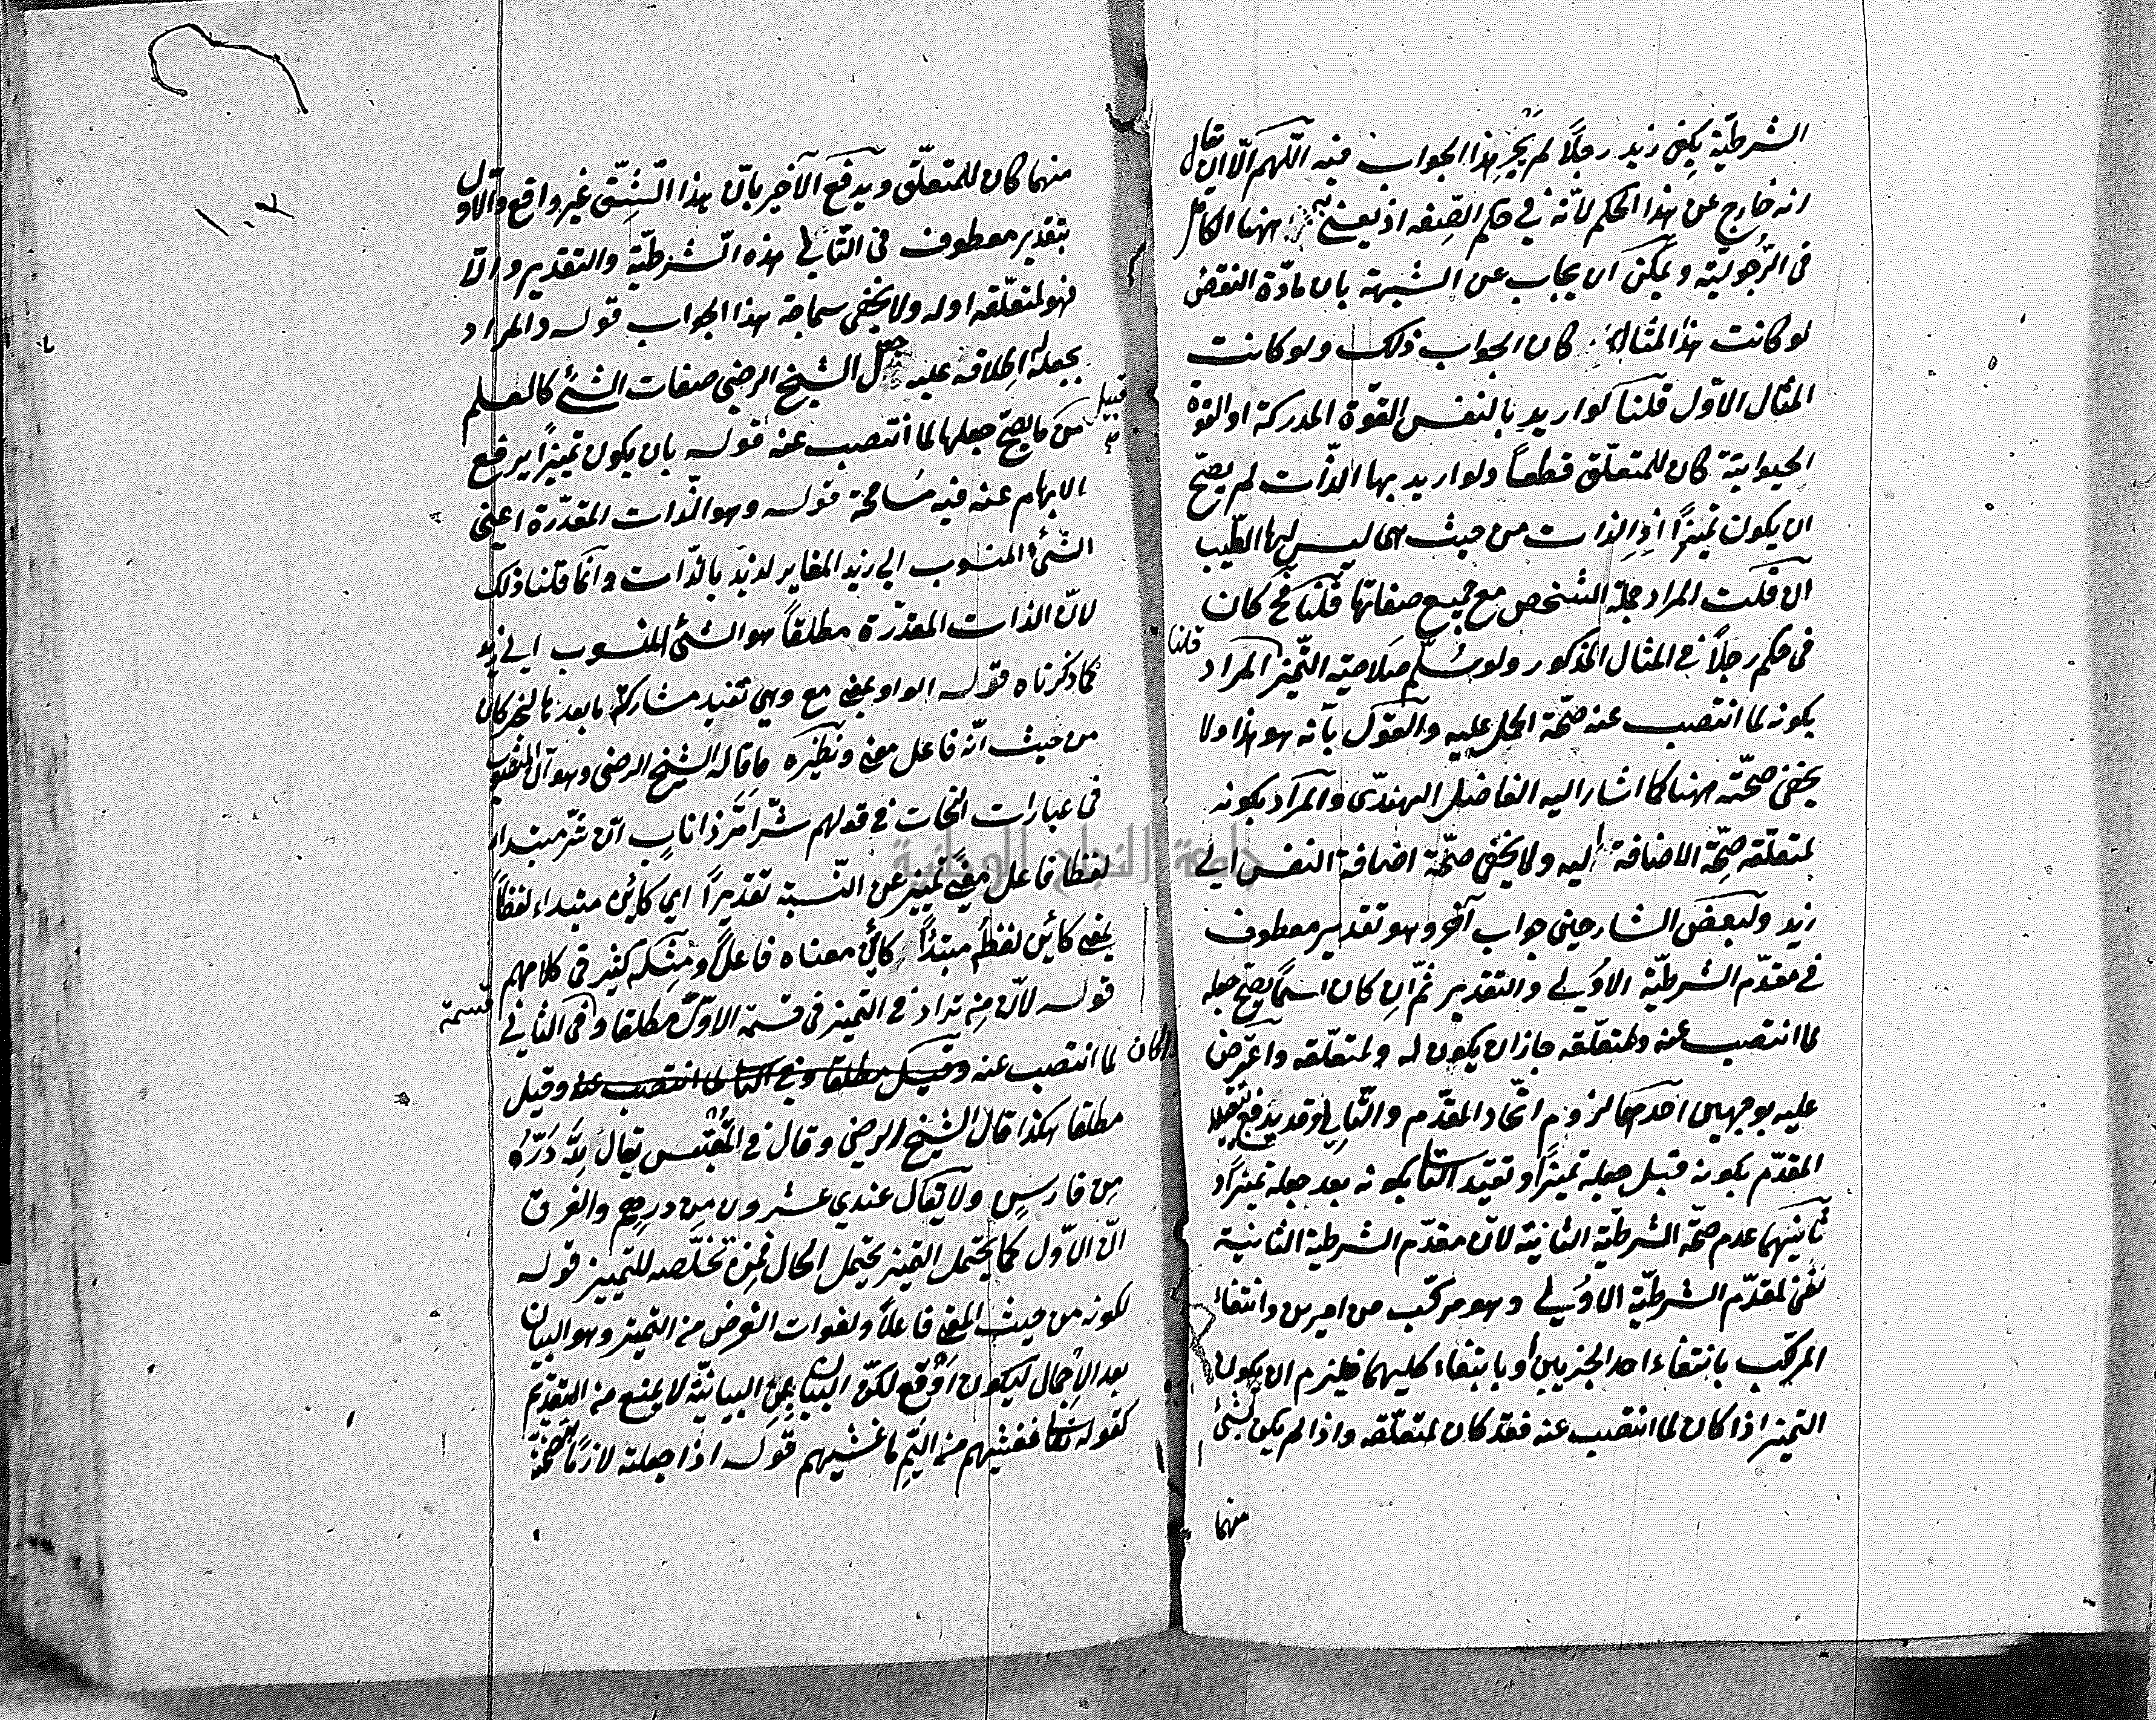 الشرطيّة يكفي زيد رجلًا لم يجر هذا الجواب فيه اللّهم الّا ان يقال
انه خارج عن هذا الحكم لانّه في حكم الصّفة اذ يعني به ههنا الكامل
في الرّجوليّة ويمكن ان يجاب عن الشبهة بان مادّة النقض
لو كانت هذا المثال كان الجواب ذلك ولو كانت
المثال الاوّل قلنا لو اريد بالنفس القوّة المدركة او القوّة
الحيوانيّة كان للمتعلّق قطعاً ولو اريد بها الذّات لم يصحّ
ان يكون تميزاً اذ الذات من حيث هي ليس لها الطّيب
ان قلت المراد جملة الشخص مع جميع صفاتها قلنا فح كان
في حكم رجلاً في المثال المذكور ولو سُلّم صلاحيته التّميز المراد
قلنا
بكونه لما انتصب عنه صحّة الحمل عليه والقول بانّه هو هذا ولا
يخفى صحّته ههنا كما اشار اليه الفاضل الهندّى والمراد بكونه
لمتعلّقه صحّة الاضافة اليه ولا يخفى صحّة اضافة النفس الى
زيد ولبعض الشارحين جواب آخر وهو تقدير معطوف
في مقدّم الشرطيّة الاولى والتقدير ثمّ ان كان اسمًا يصحّ جعله
لما انتصب عنه ولمتعلّقه جاز ان يكون له ولمتعلّقه واعترض
عليه بوجهين احدهما لزوم اتّحاد المقدّم والتّالي وقد يدفع بتقييد
المقدّم بكونه قبل جعله تميزًا وتقييد التالي بكونه بعد جعله تميزًا و
ثانيهما عدم صحّة الشرطيّة الثانيّة لانّ مقدّم الشرطية الثانية
نفى لمقدّم الشرطيّة الاولى وهو مركّب من امرين وانتفاء
المركّب بانتفاء احد الجزيين او بانتفاء كليهما فيلزم ان يكون
التميز اذا كان لما انتصب عنه فقد كان لمتعلّقه واذا لم يكن لشئ
منهما
١٠٢
منهما كان للمتعلّق ويدفع الآخير بانّ هذا الشّقّ غير واقع والاوّل
بتقدير معطوف في التّالي هذه الشّرطيّة والتقدير والّا
فهو لمتعلّقه او له ولا يخفى سماجة هذا الجواب قوله والمراد
بجعله له اطلاقه عليه جعل الشيخ الرضي صفات الشئ كالعلم
قبيل
من ما يصحّ جعلها لما انتصب عنه قوله بان يكون تميزاً يرفع
الابهام عنه فيه مسامحة قوله وهو الذّات المقدّرة اعني
الشّئ المنسوب الى زيد المغاير لزيد بالذّات وانّما قلنا ذلك
لانّ الذات المقدّرة مطلقاً هو الشئ المنسوب الى زيد
كما ذكرناه قوله الواو بمعنى مع وهي تفيد مشاركة ما بعد ها لخبر كان
من حيث انّه فاعل معنى ونظيره ما قاله الشيخ الرضي وهو انّ المنصوب
في عبارات النحات في قولهم شرّ اهرّ ذا ناب انّ شرّ مبتداء
لفظا فاعل معنًى تمييز عن النّسبة تقديرًا اي كائن مبتداء لفظاً
بمعنى كائن لفظه مبتدأ كائن معناه فاعلاً ومثله كثير في كلامهم
قوله لانّ من تزاد في التميز في قسمة الاوّل مطلقا وفي الثاني
قسمة
ان كان
لما انتصب عنه وقيل مطلقا وفي الثاني لما انتصب عنه وقيل
مطلقا هكذا قال الشيخ الرضي وقال في المقتبس يقال للهِ دَرّهُ
مِن فارسٍ ولا يقال عندي عشرون من درهم والفرق
انّ الاوّل كما يحتمل التميز يحتمل الحال فمن تخلّصه للتمييز قوله
لكونه من حيث المعنى فاعلاً ولفوات الغرض من التميز وهو البيان
بعد الاجمال ليكون اوقع لكن البيان بمن البيانيّة لا يمنع من التقديم
كقوله تعا فغشيهم من اليّم ما غشيهم قوله اذا جعلته لازمًا